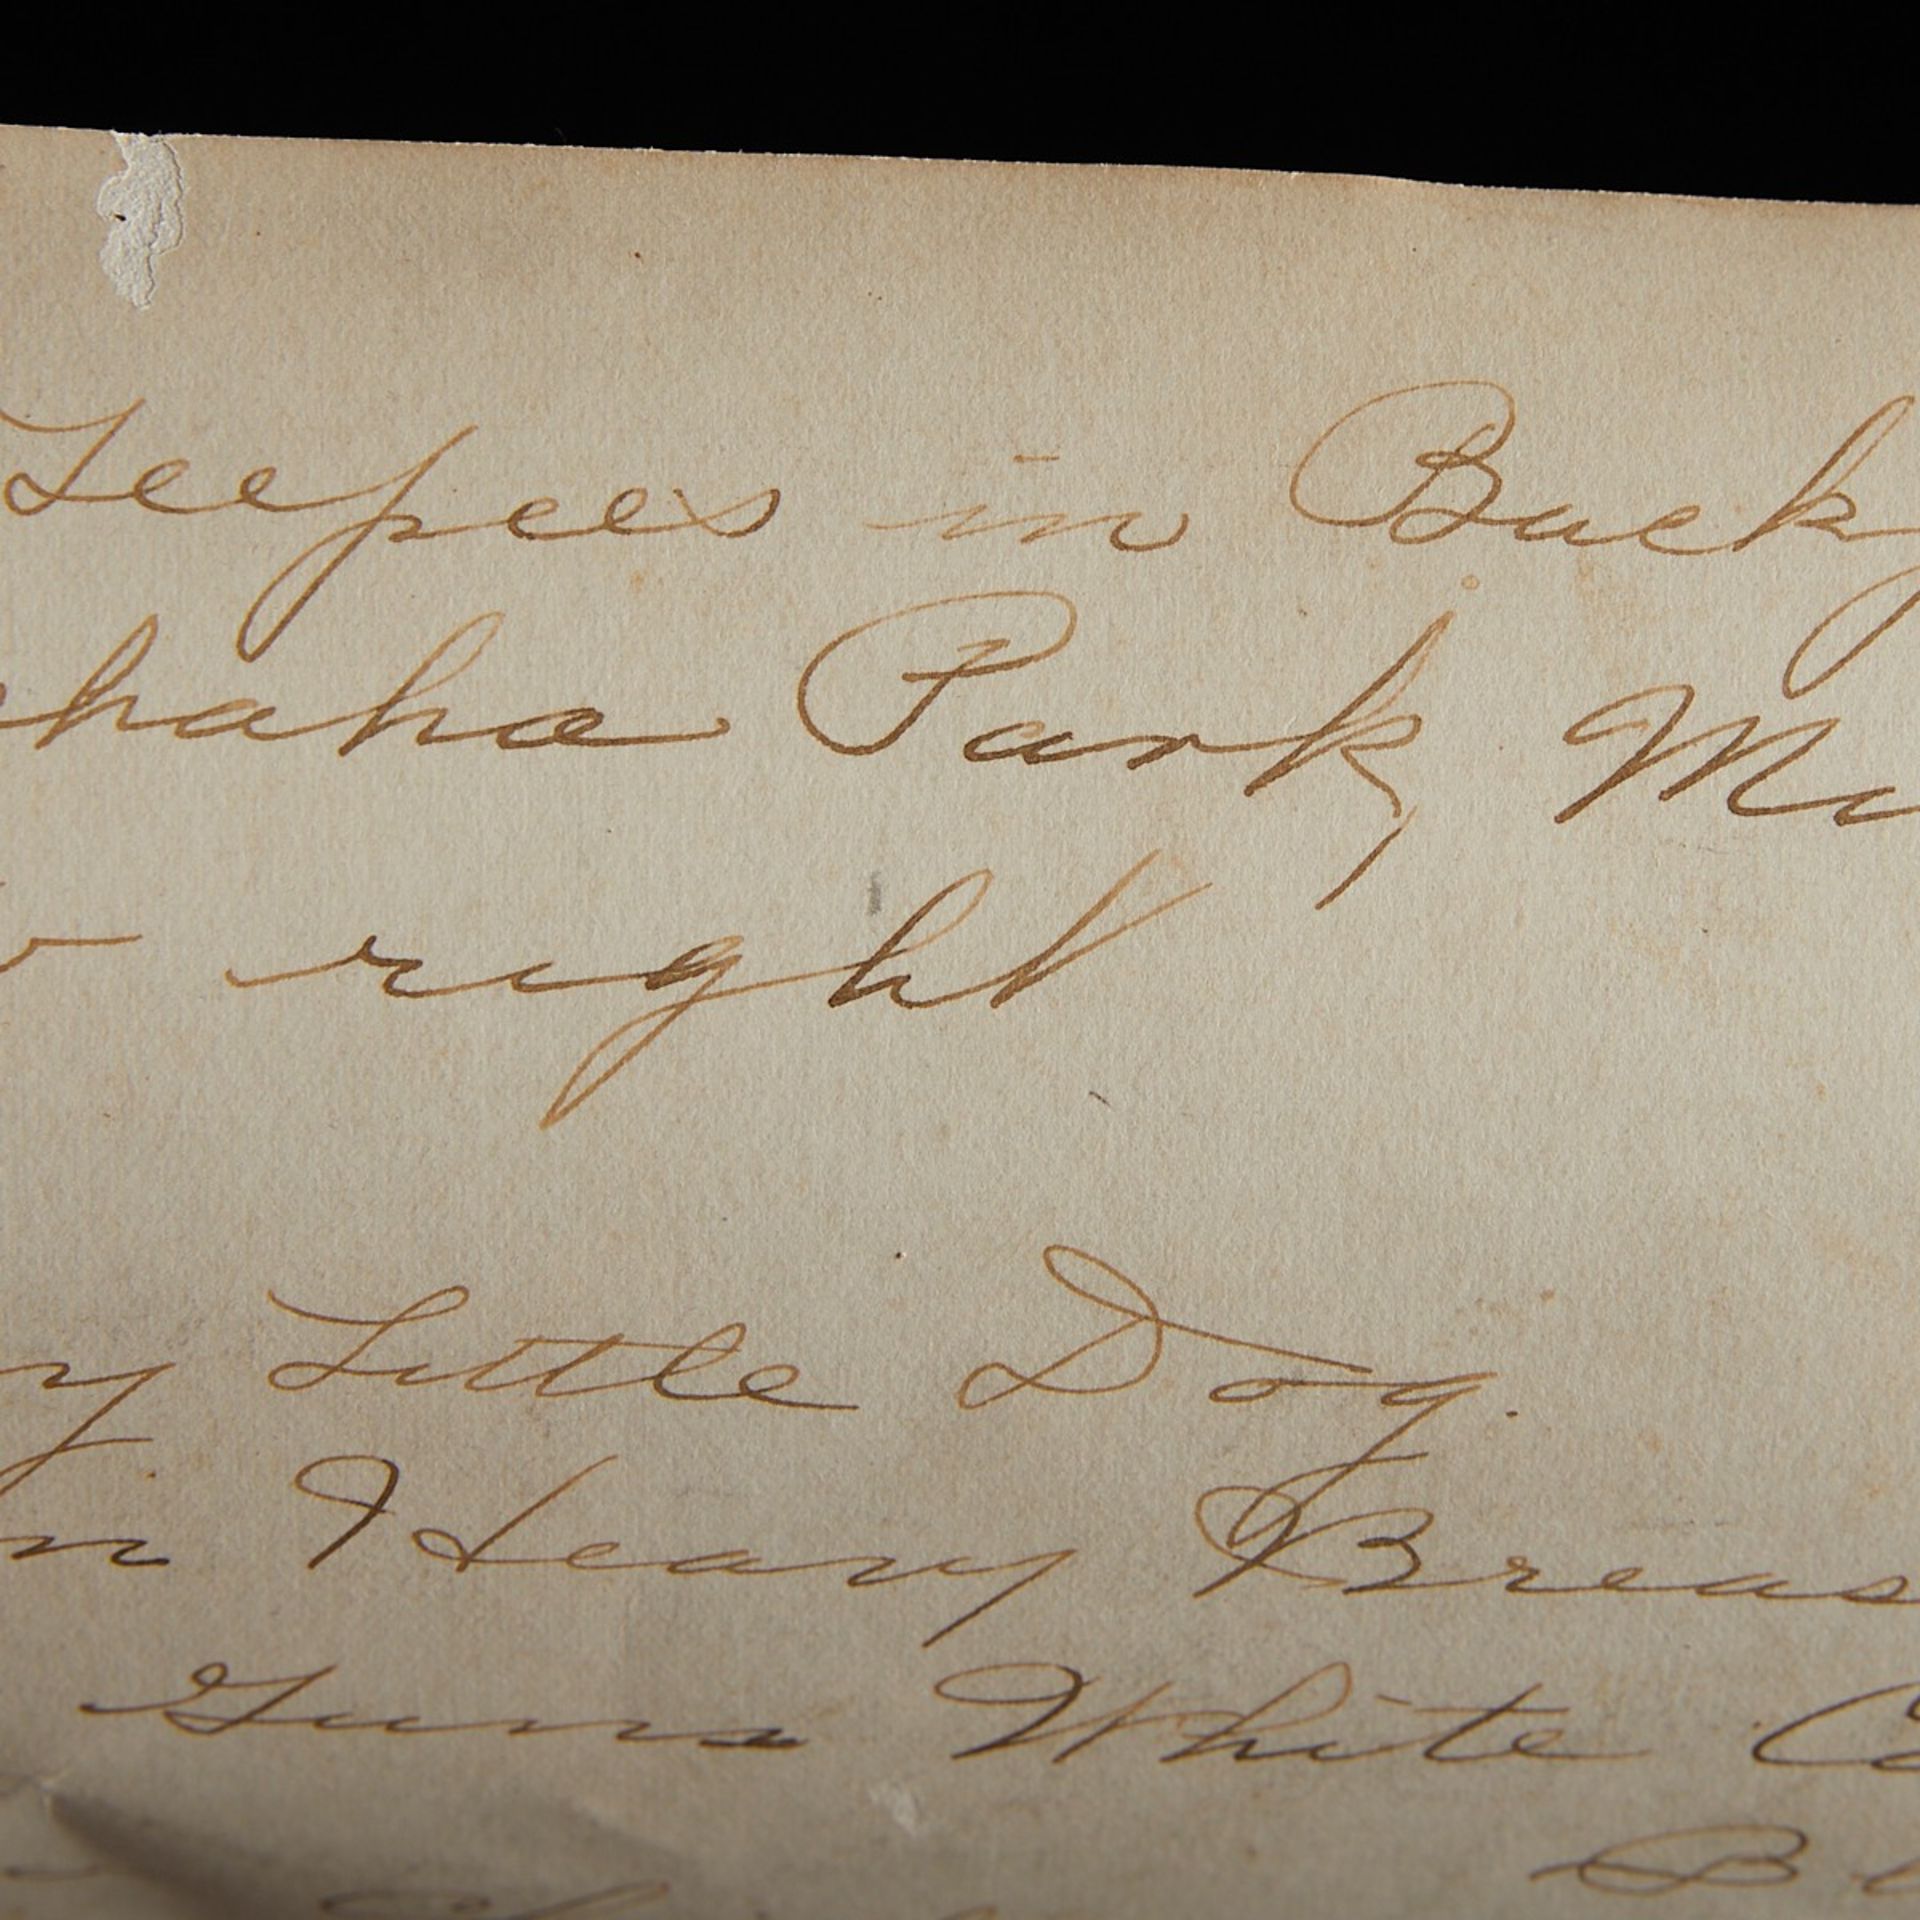 Teepees in Back
haha Park, Mi
right
Little Dog.
Heavy Breas
Guns White Ca